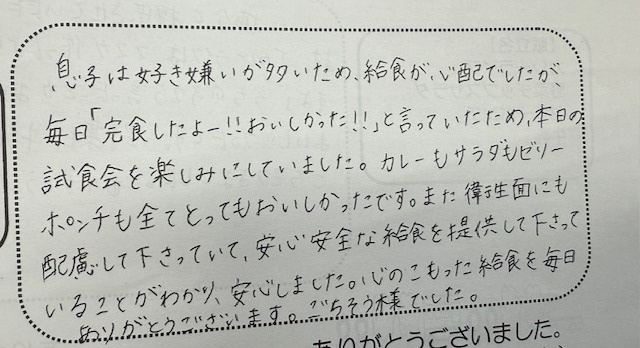 息子は好き嫌いが多いため、給食が、心配でしたが、
毎日「完食したよー!!おいしかった!!」と言っていたため、本日の
試食会を楽しみにしていました。カレーもサラダもゼリー
ポンチも全てとってもおいしかったです。また衛生面にも
配慮して下さっていて、安心安全な給食を提供して下さって
いることがわかり、安心しました。心のこもった給食を毎日
ありがとうございます。ごちそう様でした。
ありがとうございました。